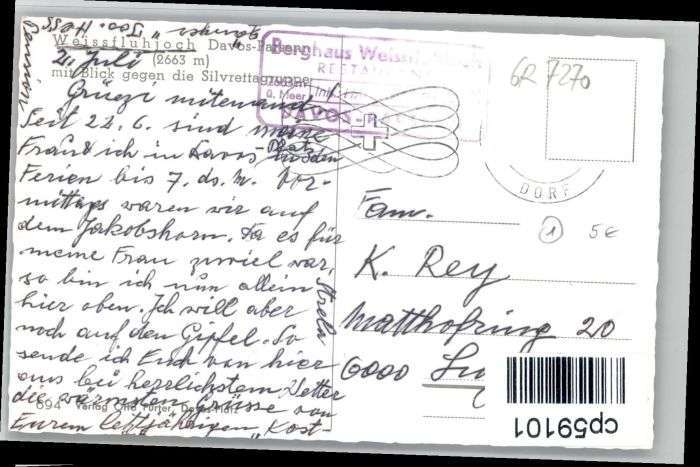 Weissfluhjoch Davos-Parsenn
(2663 m)
mit Blick gegen die Silvrettagruppe
2. Juli
Grüezi mitenand
Seit 22.6. sind meine
Frau & ich in Davos-Platz in den
Ferien bis 7. ds. M. Vor-
mittags waren wir auf
dem Jakobshorn. Da es für
meine Frau zuviel war,
so bin ich nun allein
hier oben. Ich will aber
noch auf den Gipfel. So
sende ich Euch von hier
aus bei herrlichstem Wetter
die wärmsten Grüsse von
Eurem letztjährigen "Kost
Strela
694 Verlag Otto Furter, Davos
Berghaus Weissfluhjoch
RESTAURANT
ü. Meer
DAVOS-
DORF
GR 7270
1
5€
Fam.
K. Rey
Matthofring 20
6000 Lu
cp59101